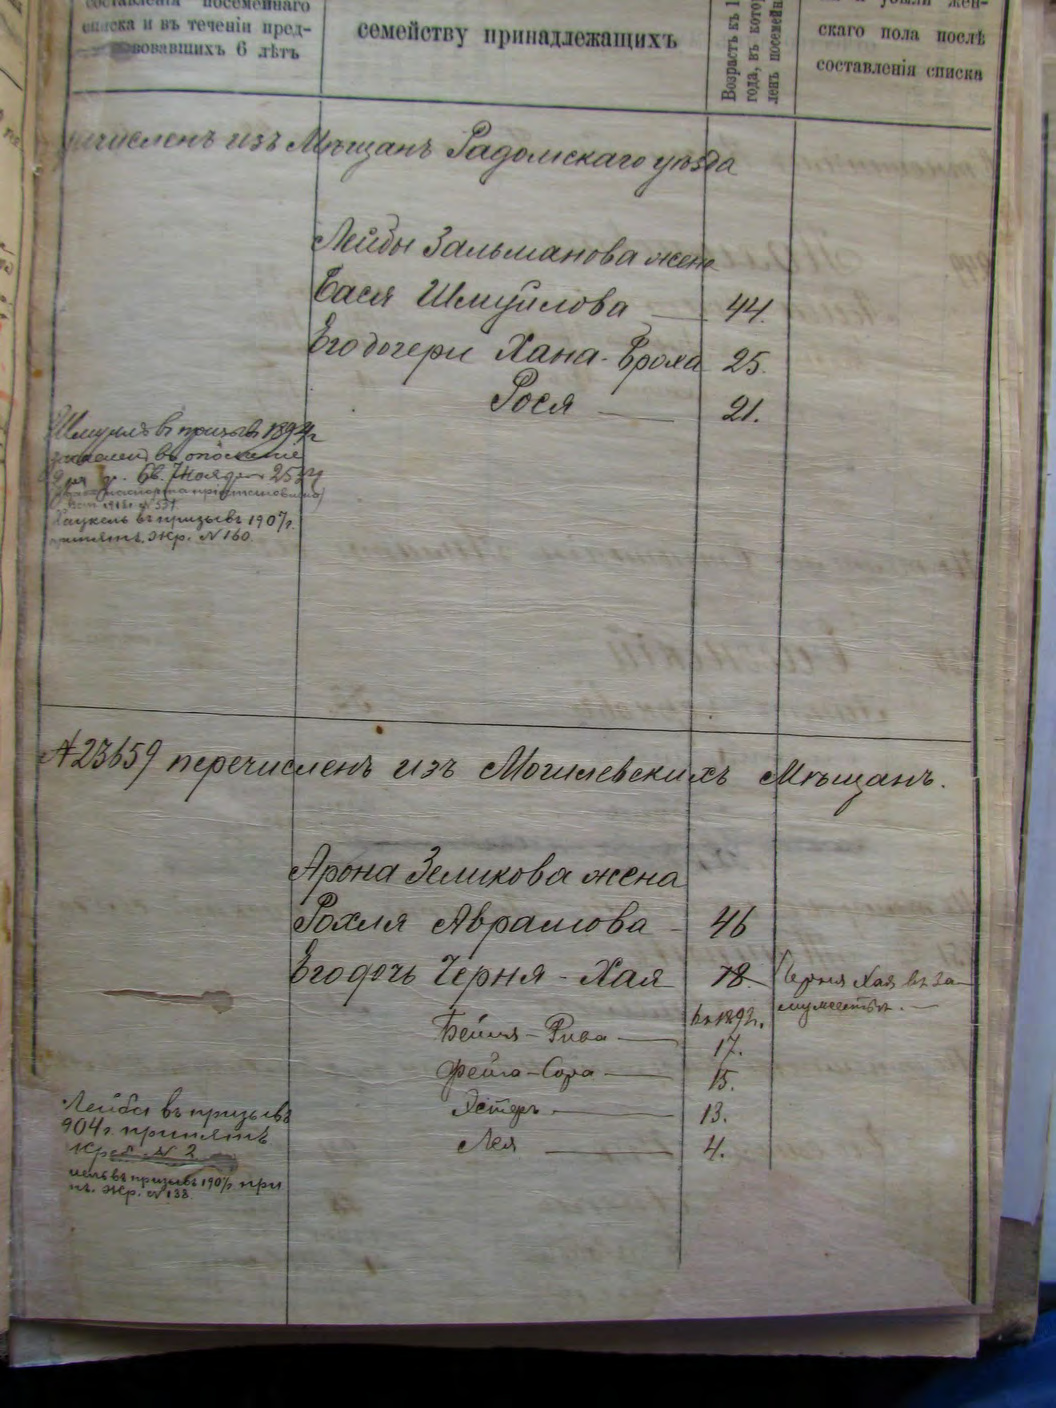 составленія посемейнаго
списка и въ теченіи пред-
вовавшихъ 6 лѣтъ
семейству принадлежащихъ
Возрастъ къ 1
года, въ кото
ленъ посемейн
и убыли жен-
скаго пола послѣ
составленія списка
ичисленъ изъ Мѣщанъ Радомскаго уѣзда
Лейбы Зальманова жена
Бася Шмуйлова 44.
Его дочери Хана-Брока 25.
Рося 21.
Шмуиль въ призывъ 1894 г
въ ополченіе
Св. 7 Ноября 253
въ призывъ 1907 г.
принятъ. Жр. № 160
№ 23659 перечисленъ изъ Могилевскихъ Мѣщанъ.
Арона Зеликова жена
Рохля Аврамова 46
Его дочь Черня-Хая 18. Черня Хая въ за-
мужествѣ.
въ 1892 г.
Бейля-Рива 17.
Фейга-Сора 15.
Эстеръ 13.
Лея 4.
Лейба въ призывъ
904 г. принятъ
Жр. № 2
въ призывъ 1907 г. при
нъ. Жр. № 138.